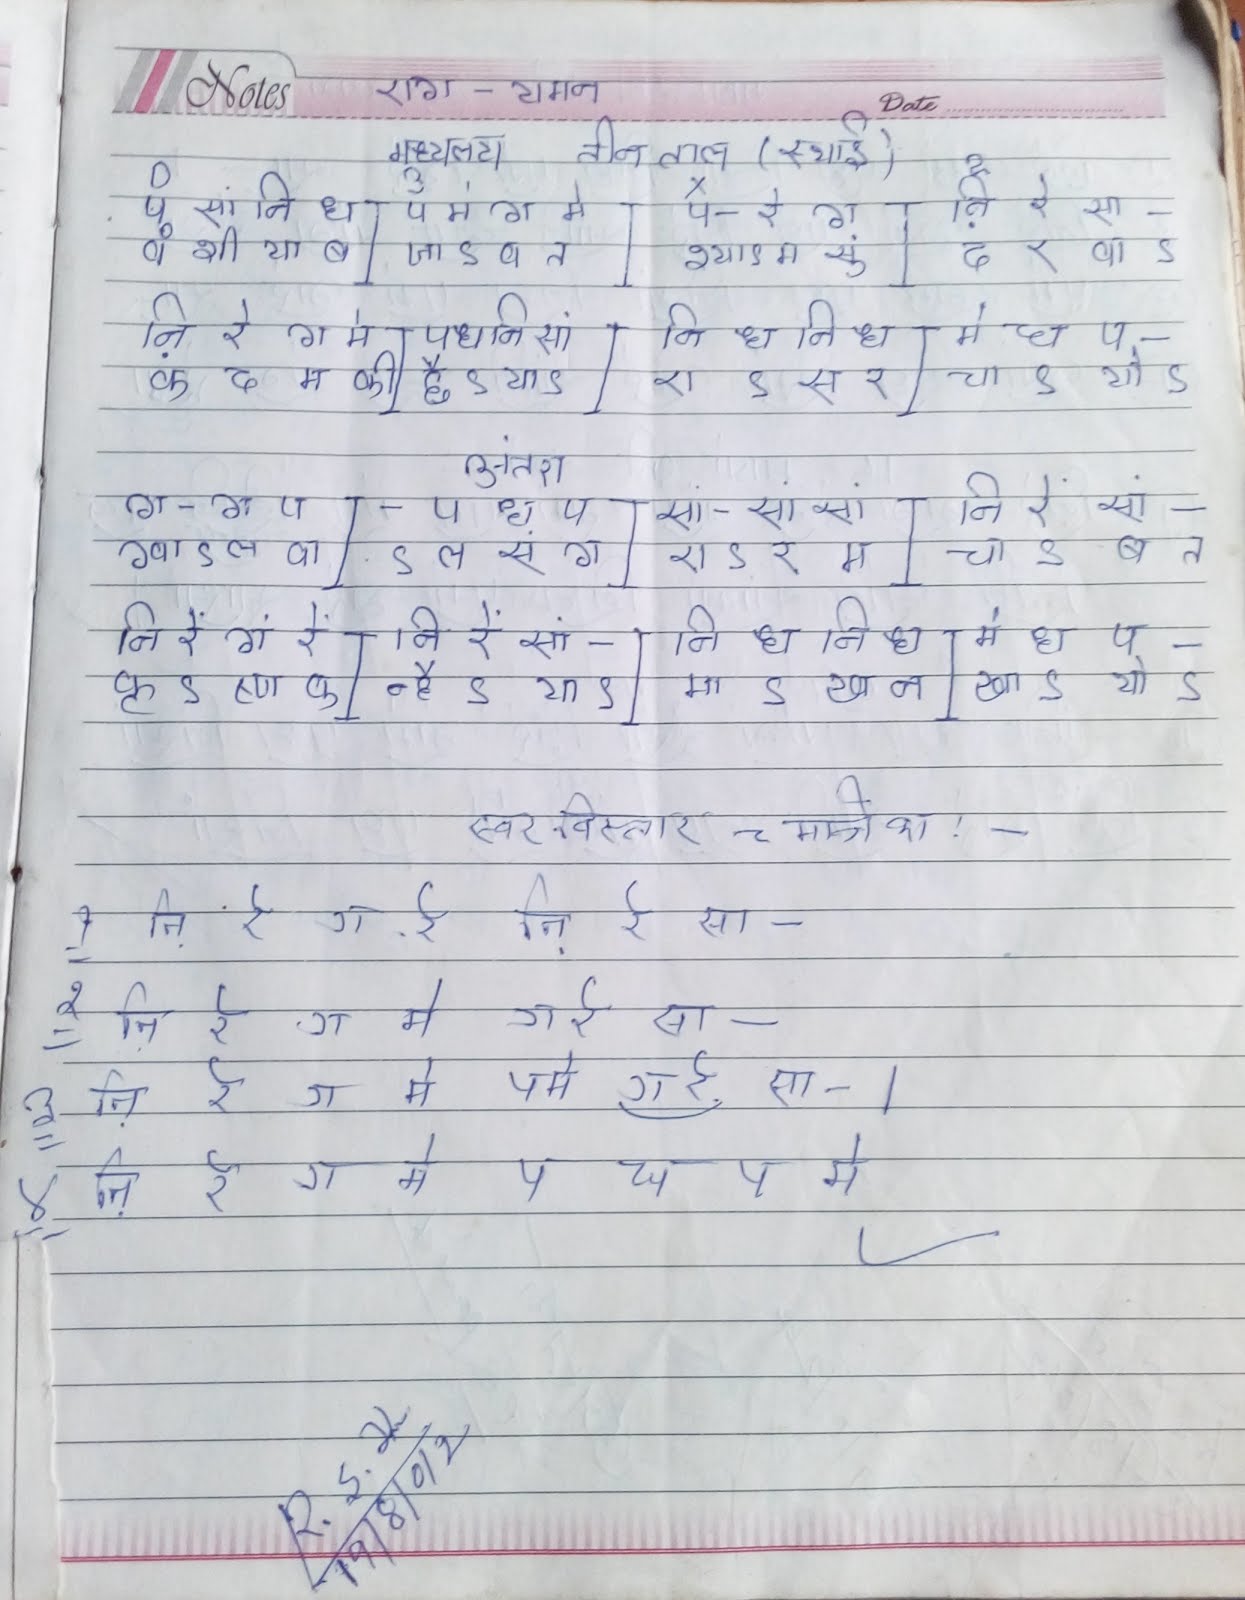 Notes
राग - यमन
Date
मध्यलय तीन ताल (स्थाई)
0 3 X २
प सां नि ध | प मे ग मे | प - रे ग | ऩि रे सा -
बं शी या ब | जा ऽ व त | श्या ऽ म सुं | द र वा ऽ
ऩि रे ग मे | प ध नि सां | नि ध नि ध | मे ध प -
क द म की | छै ऽ या ऽ | रा ऽ स र | चा ऽ यो ऽ
अंतरा
ग - ग प | - प ध प | सां - सां सां | नि रें सां -
ग्वा ऽ ल बा | ऽ ल सं ग | रा ऽ र म | चा ऽ व त
नि रें गं रें | नि रें सां - | नि ध नि ध | मे ध प -
कृ ऽ ष्ण क | न्है ऽ या ऽ | मा ऽ ख न | खा ऽ यो ऽ
स्वर विस्तार
१ ऩि रे ग रे ऩि रे सा -
२ ऩि रे ग मे ग रे सा -
३ ऩि रे ग मे प मे ग रे सा - |
४ ऩि रे ग मे प ध प मे
19/8/012